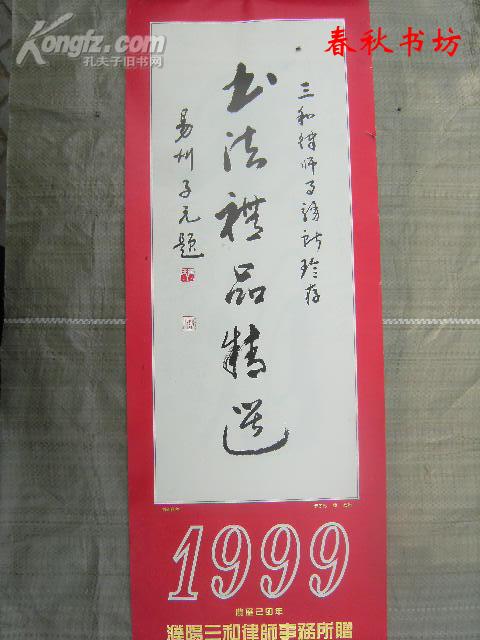 Kongfz.com
孔夫子旧书网
春秋书坊
三和律师事務所珍存
书法禮品精選
易州子元题
1999
農曆己卯年
濮陽三和律師事務所贈